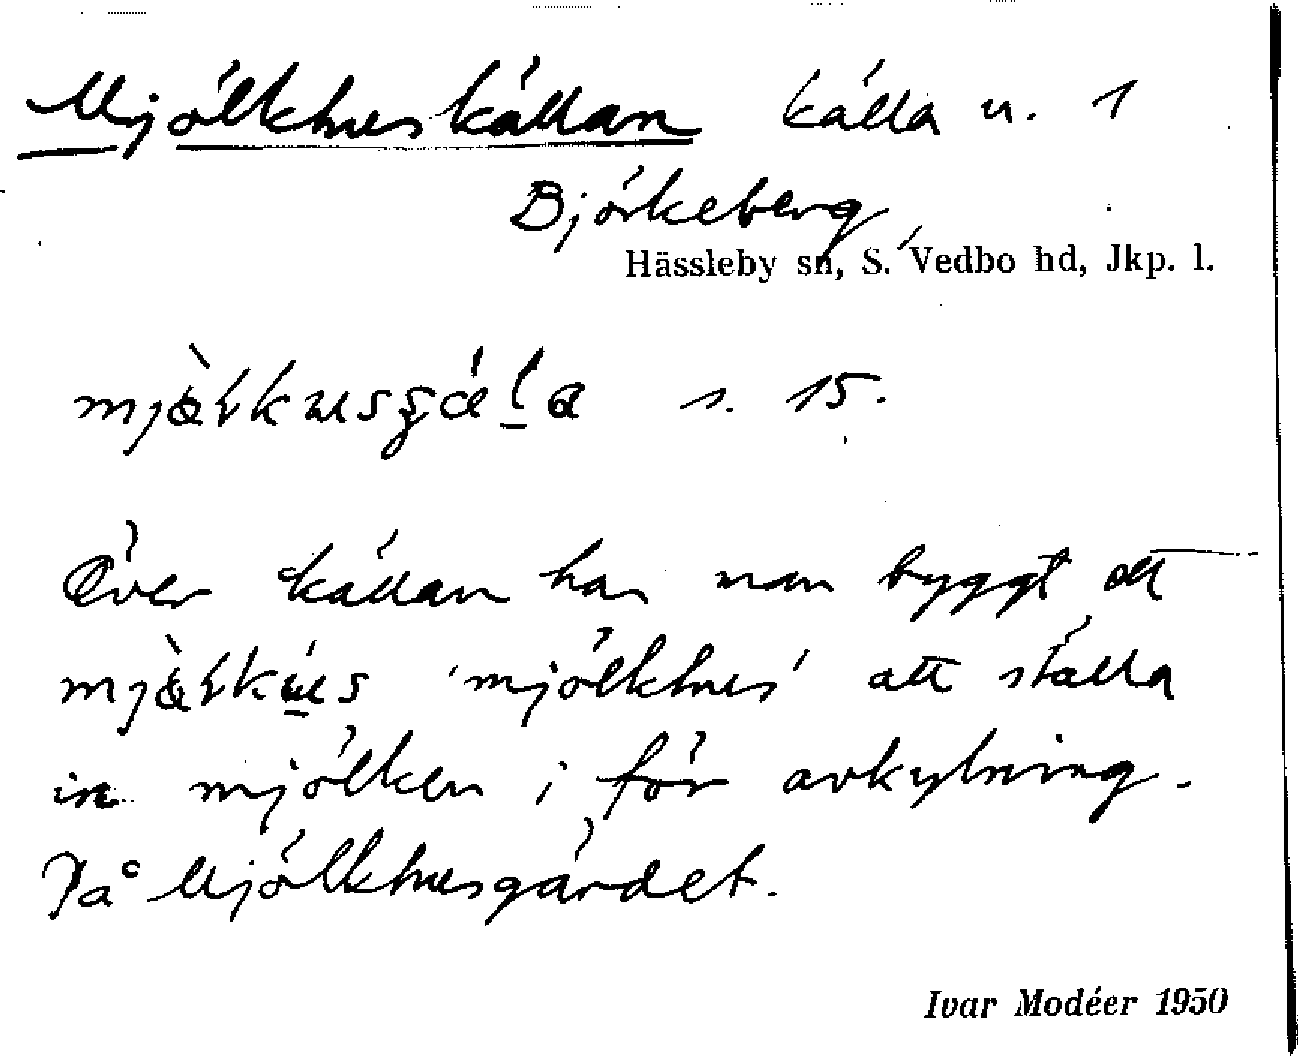 Mjölkhuskällan källa n. 1
Björkeberg
Hässleby sn, S. Vedbo hd, Jkp. l.
s. 15.
Över källan har man byggt ett
'mjölkhus' att ställa
in mjölken i för avkylning.
På Mjölkhusgärdet.
Ivar Modéer 1950